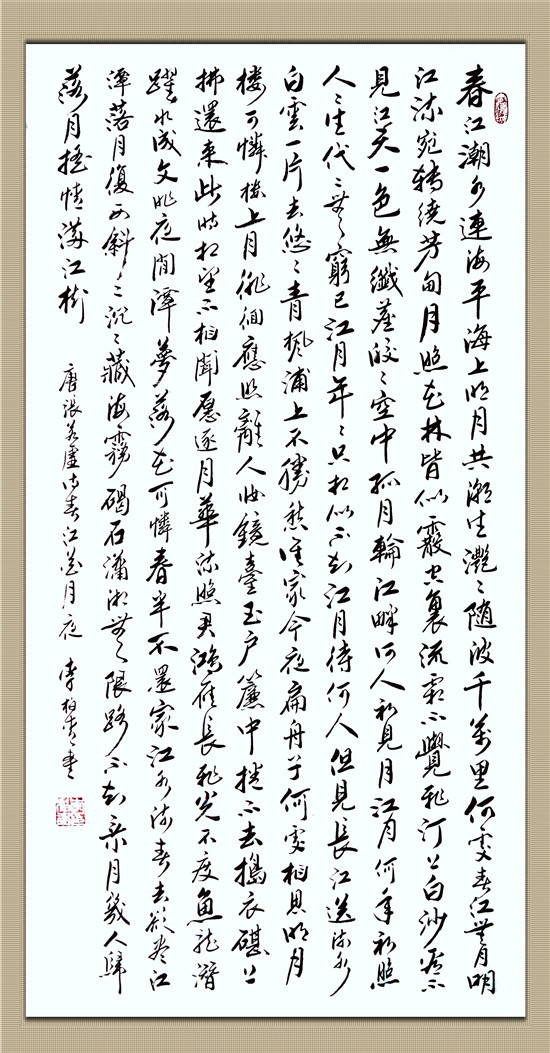 春江潮水連海平海上明月共潮生灔〻随波千萬里何處春江無月明
江流宛轉繞芳甸月照花林皆似霰空裏流霜不覺飛汀上白沙看不
見江天一色無纖塵皎〻空中孤月輪江畔何人初見月江月何年初照
人〻生代〻無窮已江月年〻只相似不知江月待何人但見長江送流水
白雲一片去悠〻青楓浦上不勝愁誰家今夜扁舟子何處相思明月
楼可憐楼上月徘徊應照離人妝鏡臺玉户簾中捲不去搗衣碪上
拂還來此時相望不相聞愿逐月華流照君鴻雁長飛光不度魚龍潛
躍水成文昨夜閒潭夢落花可憐春半不還家江水流春去欲盡江
潭落月復西斜〻沉〻藏海霧碣石瀟湘無限路不知乘月幾人歸
落月搖情滿江樹
唐張若虛詩春江花月夜 李柏書